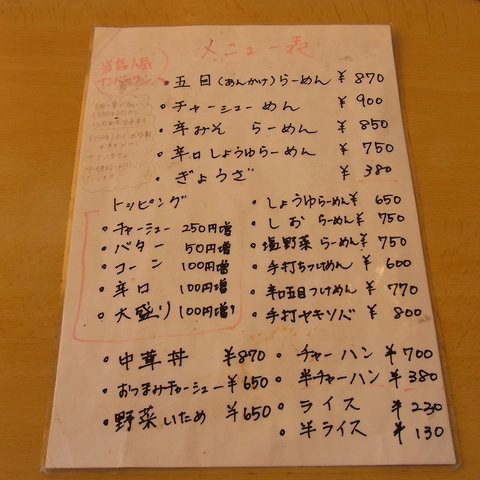 メニュー表
当店人気
ナンバーワン
・五目(あんかけ)らーめん ¥870
・チャーシューめん ¥900
・辛みそ らーめん ¥850
・辛口しょうゆらーめん ¥750
・ぎょうざ ¥380
トッピング
・チャーシュー 250円増
・バター 50円増
・コーン 100円増
・辛口 100円増
・大盛り 100円増
・しょうゆらーめん ¥650
・しお らーめん ¥750
・塩野菜 らーめん ¥750
・手打ちつけめん ¥600
・辛口五目つけめん ¥770
・手打ヤキソバ ¥800
・中華丼 ¥870
・おつまみチャーシュー ¥650
・野菜いため ¥650
・チャーハン ¥700
・半チャーハン ¥380
・ライス ¥230
・半ライス ¥130